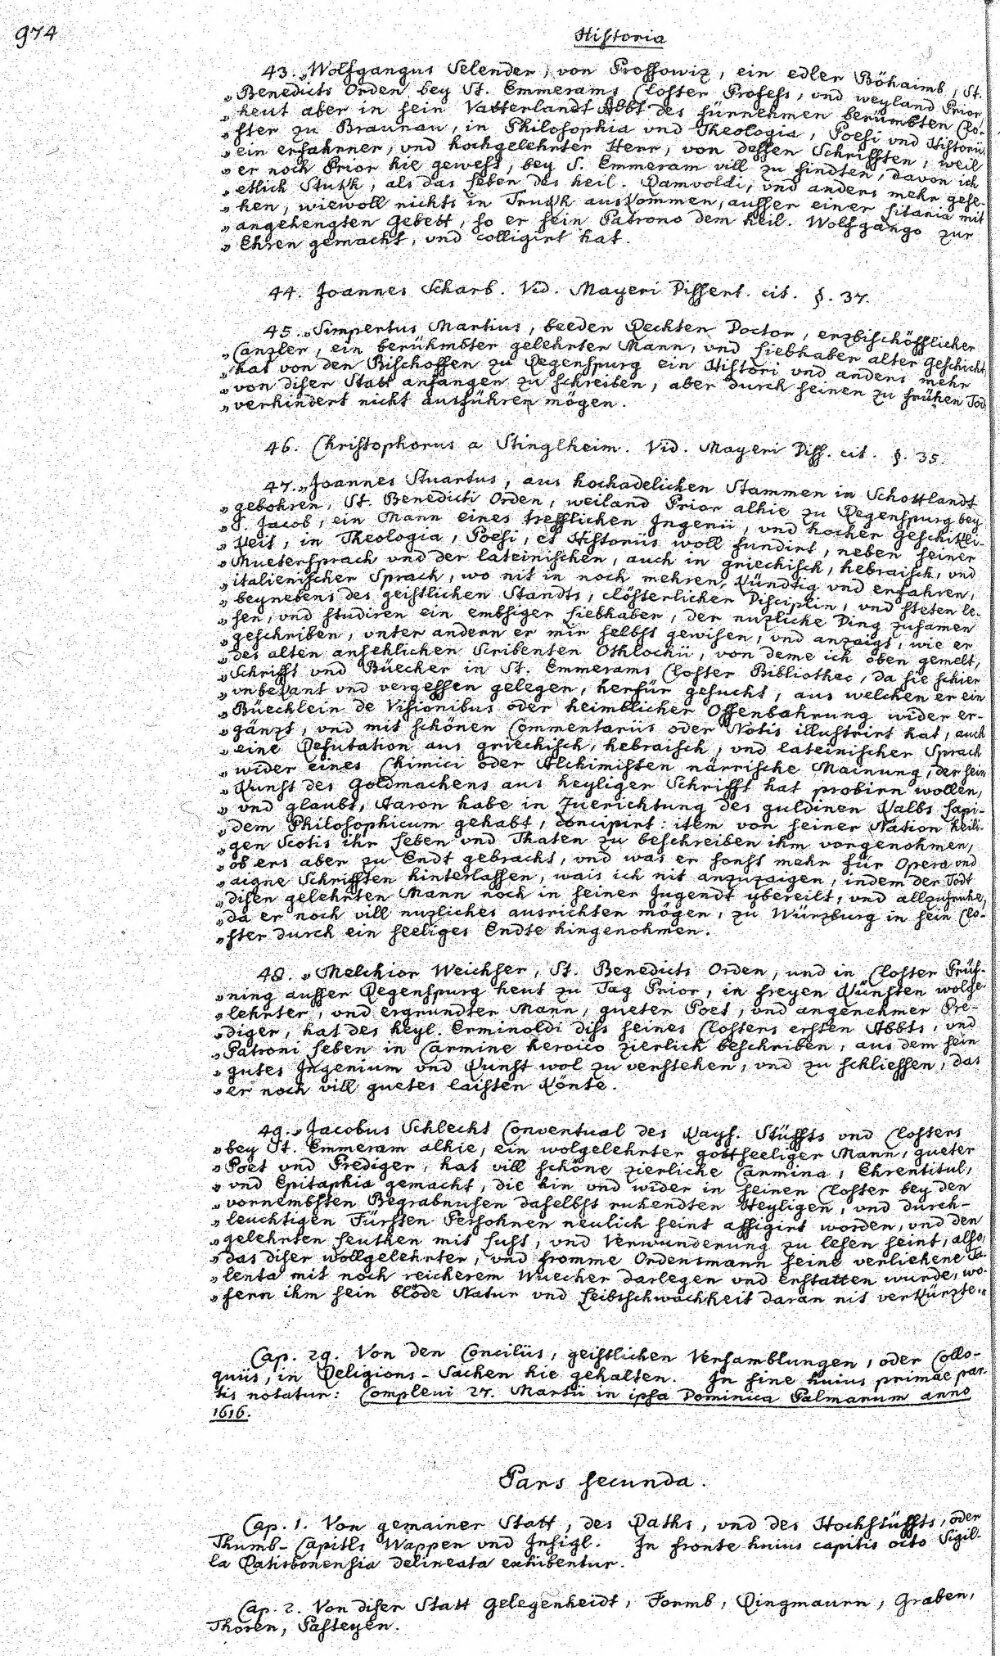 974
Historia
43. „Wolfgangus Selender, von Prossowiz, ein edler Böhaimb, St.
„Benedicts Orden bey St. Emmerams Closter Profess, und weyland Prior,
„heut aber in sein Vatterlandt Abbt des fürnehmen berümbten Clo-
„ster zu Braunau, in Philosophia und Theologia, Poesi und Historiis
„ein erfahrner, und hochgelehrter Herr, von dessen Schrifften, weil
„er noch Prior hie gewest, bey S. Emmeram vill zu findten, davon ich
„etlich Stukh, als das Leben des heil. Ramvoldi, und anders mehr gese-
„hen, wiewoll nichts in Trukh auskommen, ausser einer Litania mit
„angehengten Gebett, so er sein Patrono dem heil. Wolfgango zur
„Ehren gemacht, und colligirt hat.
44. Joannes Scharb. Vid. Mayeri Dissert. cit. §. 37.
45. „Simpertus Martius, beeden Rechten Doctor, erzbischöfflicher
„Canzler, ein berühmbter gelehrter Mann, und Liebhaber alter Geschicht,
„hat von den Bischoffen zu Regenspurg ein Histori und anders mehr
„von diser Statt anfangen zu schreiben, aber durch seinen zu frühen Tod
„verhindert nicht ausführen mögen.
46. Christophorus a Stinglheim. Vid. Mayeri Diss. cit. §. 35.
47. „Joannes Stuartus, aus hochadelichen Stammen in Schottlandt
„gebohren, St. Benedicti Orden, weiland Prior alhie zu Regenspurg bey
„S. Jacob, ein Mann eines trefflichen Ingenii, und hocher Geschikli-
„keit, in Theologia, Poesi, et Historiis woll fundirt, neben seiner
„Muetersprach und der lateinischen, auch in griechisch, hebraisch, und
„italienischer Sprach, wo nit in noch mehren, kündtig und erfahren,
„beynebens des geistlichen Standts, clösterlicher Disciplin, und steten le-
„sen, und studiren ein embsiger Liebhaber, der nuzliche Ding zusamen
„geschriben, unter andern er mir selbst gewisen, und anzaigt, wie er
„des alten ansehlichen Scribenten Othlochii, von deme ich oben gemelt,
„Schrifft und Büecher in St. Emmerams Closter Bibliothec, da sie schier
„unbekant und vergessen gelegen, herfür gesucht, aus welchen er ein
„Büechlein de Visionibus oder heimblicher Offenbahrung wider er-
„gänzt, und mit schönen Commentariis oder Notis illustrirt hat, auch
„eine Refutation aus griechisch, hebraisch, und lateinischer Sprach
„wider eines Chimici oder Alchimisten närrische Mainung, der sein
„Kunst des Goldmachens aus heyliger Schrifft hat probirn wollen,
„und glaubt, Aaron habe in Zuerichtung des guldinen Kalbs Lapi-
„dem Philosophicum gehabt, concipirt: item von seiner Nation heili-
„gen Scotis ihr Leben und Thaten zu beschreiben ihm vorgenohmen,
„ob ers aber zu Endt gebracht, und was er sonst mehr für Opera und
„aigne Schrifften hinterlassen, wais ich nit anzuzaigen, indem der Todt
„disen gelehrten Mann noch in seiner Jugendt ybereilt, und allzufruhe,
„da er noch vill nuzliches ausrichten mögen, zu Würzburg in sein Clo-
„ster durch ein seeliges Endte hingenohmen.
48. „Melchior Weichser, St. Benedicts Orden, und in Closter Prüf-
„ning ausser Regenspurg heut zu Tag Prior, in freyen Künsten wolge-
„lehrter, und ergrundter Mann, gueter Poet, und angenehmer Pre-
„diger, hat des heyl. Erminoldi diss seines Closters ersten Abbts, und
„Patroni Leben in Carmine heroico zierlich beschriben, aus dem sein
„gutes Ingenium und Kunst wol zu verstehen, und zu schliessen, das
„er noch vill guetes laisten könte.
49. „Jacobus Schlecht Conventual des Kays. Stüffts und Closters
„bey St. Emmeram alhie, ein wolgelehrter gottseeliger Mann, gueter
„Poet und Prediger, hat vill schöne zierliche Carmina, Ehrentitul,
„und Epitaphia gemacht, die hin und wider in seinen Closter bey den
„vornembsten Begrabnusen daselbst ruhendten Heyligen, und durch-
„leuchtigen Fürsten Persohnen neulich seint affigirt worden, und den
„gelehrten Leuthen mit Lust, und Verwunderung zu lesen seint, also
„das diser wollgelehrter, und fromme Ordensmann seine verliehene Ta-
„lenta mit noch reicherem Wuecher darlegen und erstatten wurde, wo-
„fern ihm sein blöde Natur und Leibtschwachheit daran nit verkürzte."
Cap. 29. Von den Conciliis, geistlichen Versamblungen, oder Collo-
quiis, in Religions-Sachen hie gehalten. In fine huius primae par-
tis notatur: Complevi 27. Martii in ipsa Dominica Palmarum anno
1616.
Pars secunda.
Cap. 1. Von gemainer Statt, des Raths, und des Hochstüffts, oder
Thumb-Capitls Wappen und Insigl. In fronte huius capitis octo Sigil-
la Ratisbonensia delineata exhibentur.
Cap. 2. Von diser Statt Gelegenheidt, Formb, Ringmaurn, Graben,
Thoren, Pasteyen.